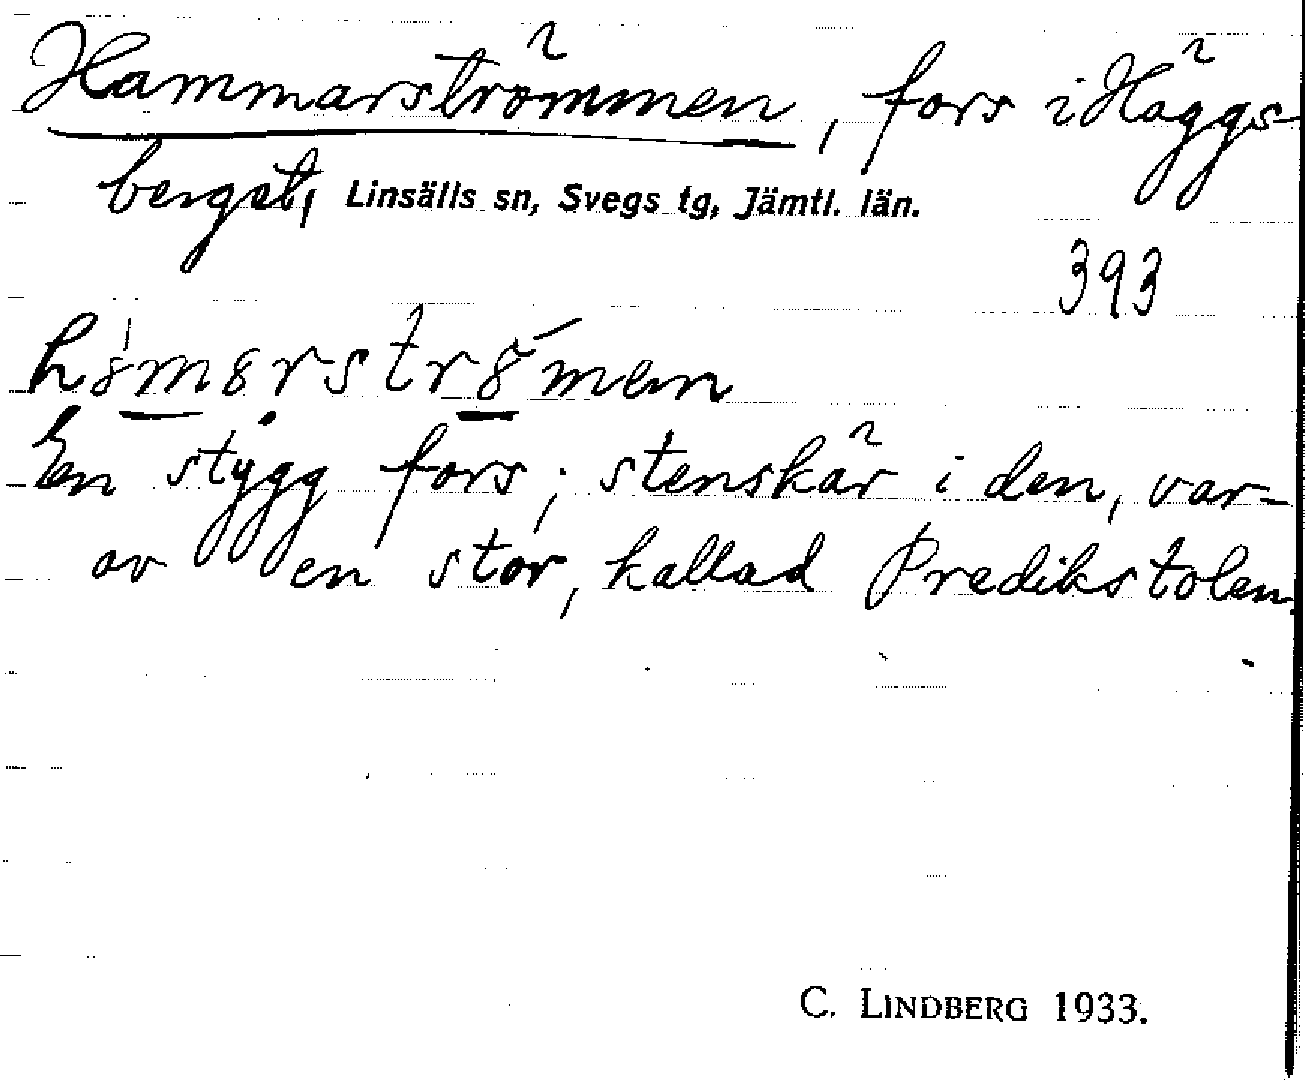 Hammarströmmen, fors i Häggs-
berget, Linsälls sn, Svegs tg, Jämtl. län.
393
En stygg fors; stenskär i den, var-
av en stor, kallad Predikstolen.
C. LINDBERG 1933.